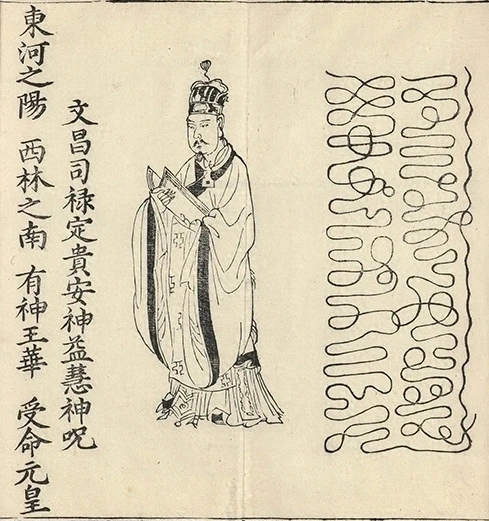 文昌司禄定貴安神益慧神呪
東河之陽 西林之南 有神王華 受命元皇